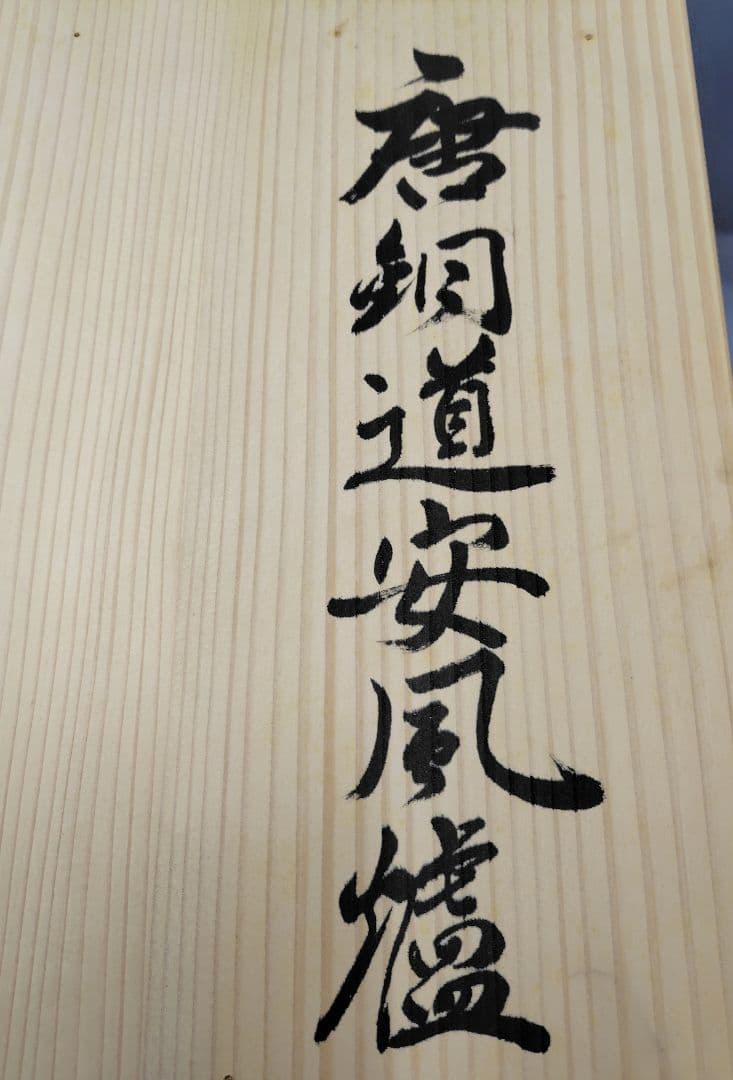 唐銅道安風爐